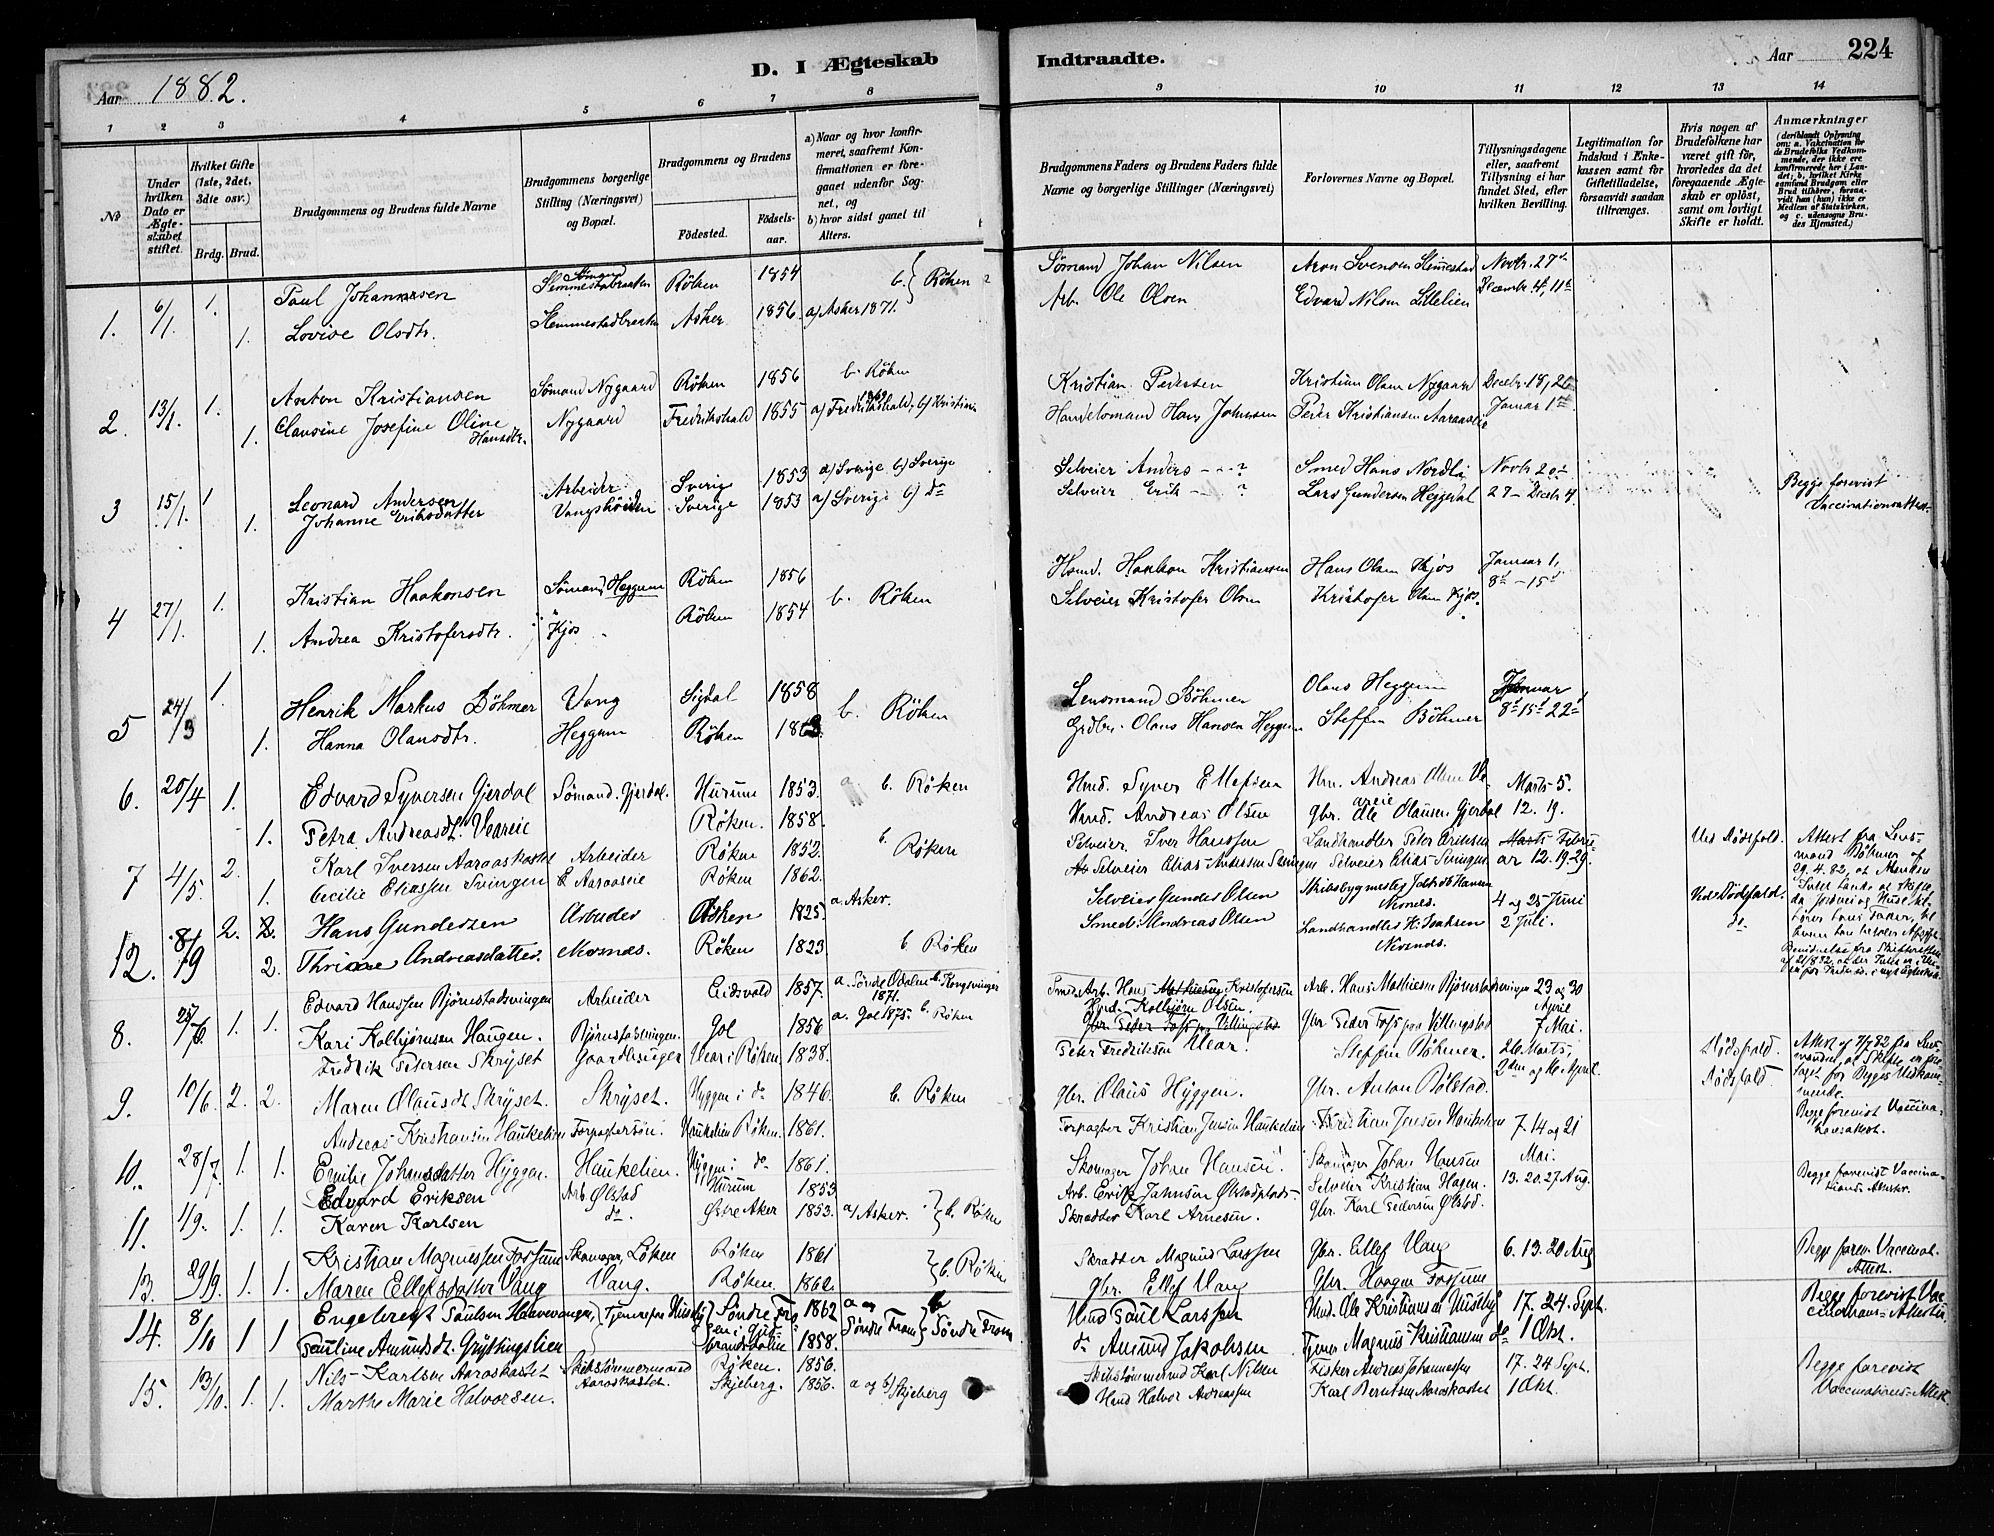 D. I Ægteskab Indtraadte.
Aar 1882. Aar 224
1 2 3 4 5 6 7 8 9 10 11 12 13 14
No
Under hvilken Dato er Ægteskabet stiftet.
Hvilket Gifte (1ste, 2det, 3dte osv.)
Brdg. Brud.
Brudgommens og Brudens fulde Navne
Brudgommens borgerlige Stilling (Næringsvei) og Bopæl.
Brudgommens og Brudens
Födested. Födselsaar.
a) Naar og hvor konfirmeret, saafremt Konfirmationen er foregaaet udenfor Sognet, og
b) hvor sidst gaaet til Alters.
Brudgommens Faders og Brudens Faders fulde Navne og borgerlige Stillinger (Næringsvei)
Forlovernes Navne og Bopæl.
Tillysningsdagene eller, saafremt Tillysning ei har fundet Sted, efter hvilken Bevilling.
Legitimation for Indskud i Enkekassen samt for Giftetilladelse, forsaavidt saadan tiltrænges.
Hvis nogen af Brudefolkene har været gift för, hvorledes da det foregaaende Ægteskab er oplöst, samt om lovligt Skifte er holdt.
Anmærkninger (deriblandt Oplysning om: a. Vaccination for de Brudefolks Vedkommende, der ikke ere konfirmerede her i Landet; b. hvilket Kirkesamfund Brudgom eller Brud tilhörer, forsaavidt han (hun) ikke er Medlem af Statskirken, og c. udensogns Brudes Hjemsted.)
1. 6/1 1. Paul Johannesen Sömand Slemmestadbraaten Röken 1854 b. Röken Sömand Johan Nilsen Aron Svensen Slemestad Novbr. 27
1. Lovise Olsdtr. Slemmestadbraaten Asker 1856 a) Asker 1871. Arb. Ole Olsen Edvard Nilsen Lillelien Decembr. 4, 11
2. 13/1 1. Anton Kristiansen Sömand Nygaard Röken 1856 b. Röken Kristian Pedersen Kristian Olsen Nygaard Decebr. 18, 26
1. Clausine Josefine Oline Hansdtr. Nygaard Fredrikshald 1855 a) Fredrikshald, b) Kristiania Handelsmand Hans Johnsen Peder Kristiansen Aaraaslie Januar 1
3 15/1. 1 Leonard Andersen Arbeider Sverige 1853 a) Sverige b) Sverige Selveier Anders - - ? Smed Hans Nordli Novbr 20
1. Johanne Eriksdatter Vangshöiden Sverige 1853 a) Sverige b) do Selveier Erik - ? Lars Gundersen Heggedal 27 - Decebr 4. Begge forevist Vaccinationsattest.
4 27/1. 1. Kristian Haakonsen Sömand, Heggum Röken 1856 b. Röken Hsmd. Haakon Kristiansen Hans Olsen Kjos Januar 1,
1. Andrea Kristofersdtr. Kjos Röken 1854 Selveier Kristofer Olsen Kristofer Olsen Kjos. 8 - 15
5 24/3 1 Henrik Markus Böhmer Vang Sigdal 1858 b. Röken Lensmand Böhmer Olaus Heggum Januar
1. Hanna Olausdtr. Heggum Röken 1863. Grdbr. Olaus Hansen Heggum Steffen Böhmer 8 15 22
6. 20/4 1. Edvard Syversen Gjerdal Sömand. Gjerdal. Hurum 1853. b. Röken Hmd. Syver Ellefsen Hm. Andreas Olsen Veareie Marts 5.
1. Petra Andreasdt. Veareie Röken. 1858. Hmd. Andreas Olsen Gbr. Ole Olausen Gjerdal 12. 19.
7 4/5. 2. Karl Iversen Aaraaskastet Arbeider Röken 1852. b. Röken Selveier. Iver Hanssen Landhandler Peter Eriksen Marts Februar 12. 19. 29. Ved Dödsfald.
1. Cecilie Eliassen Svingen E Aaraaseie Röken 1862. Selveier Elias Andersen Svingen Selveier Elias Svingen
Attest fra Lensmand Böhmer af 29.4.82
12. 8/9 2. 2. Hans Gundersen Arbeider Asker 1825 a. Asker. Selveier Gunder Olsen Skibsbygmester Jakob Hansen Nærsnes. 4 og 25 Juni Ved Dödsfald.
2. Thrine Andreasdatter Nærsnes. Röken 1823 b. Röken Smed Andreas Olsen Landhandler H. Isaksen Nærsnes. 2 Juli. do
8. 25/6 1. 1. Edvard Hanssen Björnstadsvingen Arbeider Eidsvold 1857. a. Söndre Odalen b. Kongsvinger 1871. Arb. Hans Mathiesen Kristofersen Arb. Hans Mathiesen Björnstadsvingen 23 og 30 April
Kari Kolbjörnsen Haugen. Björnstadsvingen. Gol 1856 a. Gol 1875 b. Röken Hmd. Kolbjörn Olsen. Gbr Peder Foss paa Villingstad 7 Mai.
9. 10/6. 2. 2. Fredrik Petersen Skryset Gaardbruger Uear i Röken 1838. Peter Fredriksen Uear. Steffen Böhmer. 26 Marts, Dödsfald.
Maren Olausdt Skryset. Skryset. Hyggen i do 1846. b. Röken Gbr. Olaus Hyggen. Gbr. Anton Bölstad. 2den og 16 April. Dödsfald.
10. 28/7. 1. 1. Andreas Kristiansen Haukelien Forpaktersön. Haukelien Röken. 1861. Forpagter Kristian Jensen Haukelien Kristian Jensen Haukelien 7. 14 og 21 Mai. Begge forevist Vaccinationsattest.
Emilie Johansdatter Hyggen. Haukelien. Hyggen i do 1861. Skomager Johan Hansen. Skomager Johan Hansen
11. 1/9. 1. 1. Edvard Eriksen Arb. Ölstad Hurum 1853 Arb. Erik Jahnsen Ölstadplads Selveier Kristian Hagen. 13. 20. 27. Aug. Begge forevist Vaccinations Attester.
Karen Karlsen do. Östre Aker 1853. a) Asker. b. Röken Skrædder Karl Arnesen. Gbr. Karl Pedersen Ölstad.
13. 29/9. 1. 1. Kristian Magnussen Fossum Skomager, Löken Röken 1861 b. Röken Skrædder Magnus Larssen Gbr. Ellef Vang 6. 13. 20 Aug Begge forev. Vaccinat. Attest.
Maren Ellefsdatter Vang Vang. Röken 1862. Gbr. Ellef Vang Gbr. Haagen Fossum
14. 8/10 1 1 Engebregt Paulsen Tjenere paa Huseby Söndre Fron i Gudbrandsdalen 1862 a og b Söndre Fron Söndre Fron Hmd Paul Larssen Hmd. Ole Kristiansen Huseby 17. 24. Sept. Begge forevist Vaccinations-Attester.
Pauline Amundsdt. Gryttingslien 1858. do Amund Jakobsen Tjener Magnus Kristiansen do 1 Okt.
15. 13/10. 1. 1. Nils Karlsen Aaraskastet Skibstömmermand Röken. 1856. Skibstömmermd Karl Nilsen Fisker Andreas Johannessen 17. 24 Sept. Begge forevist
Marthe Marie Halvorsen. Aaraskastet. Skjeberg. 1856. a og b) Skjeberg Hmd Halvor Andreassen Karl Berntsen Aaraskastet 1 Okt. Vaccinations-Attest.